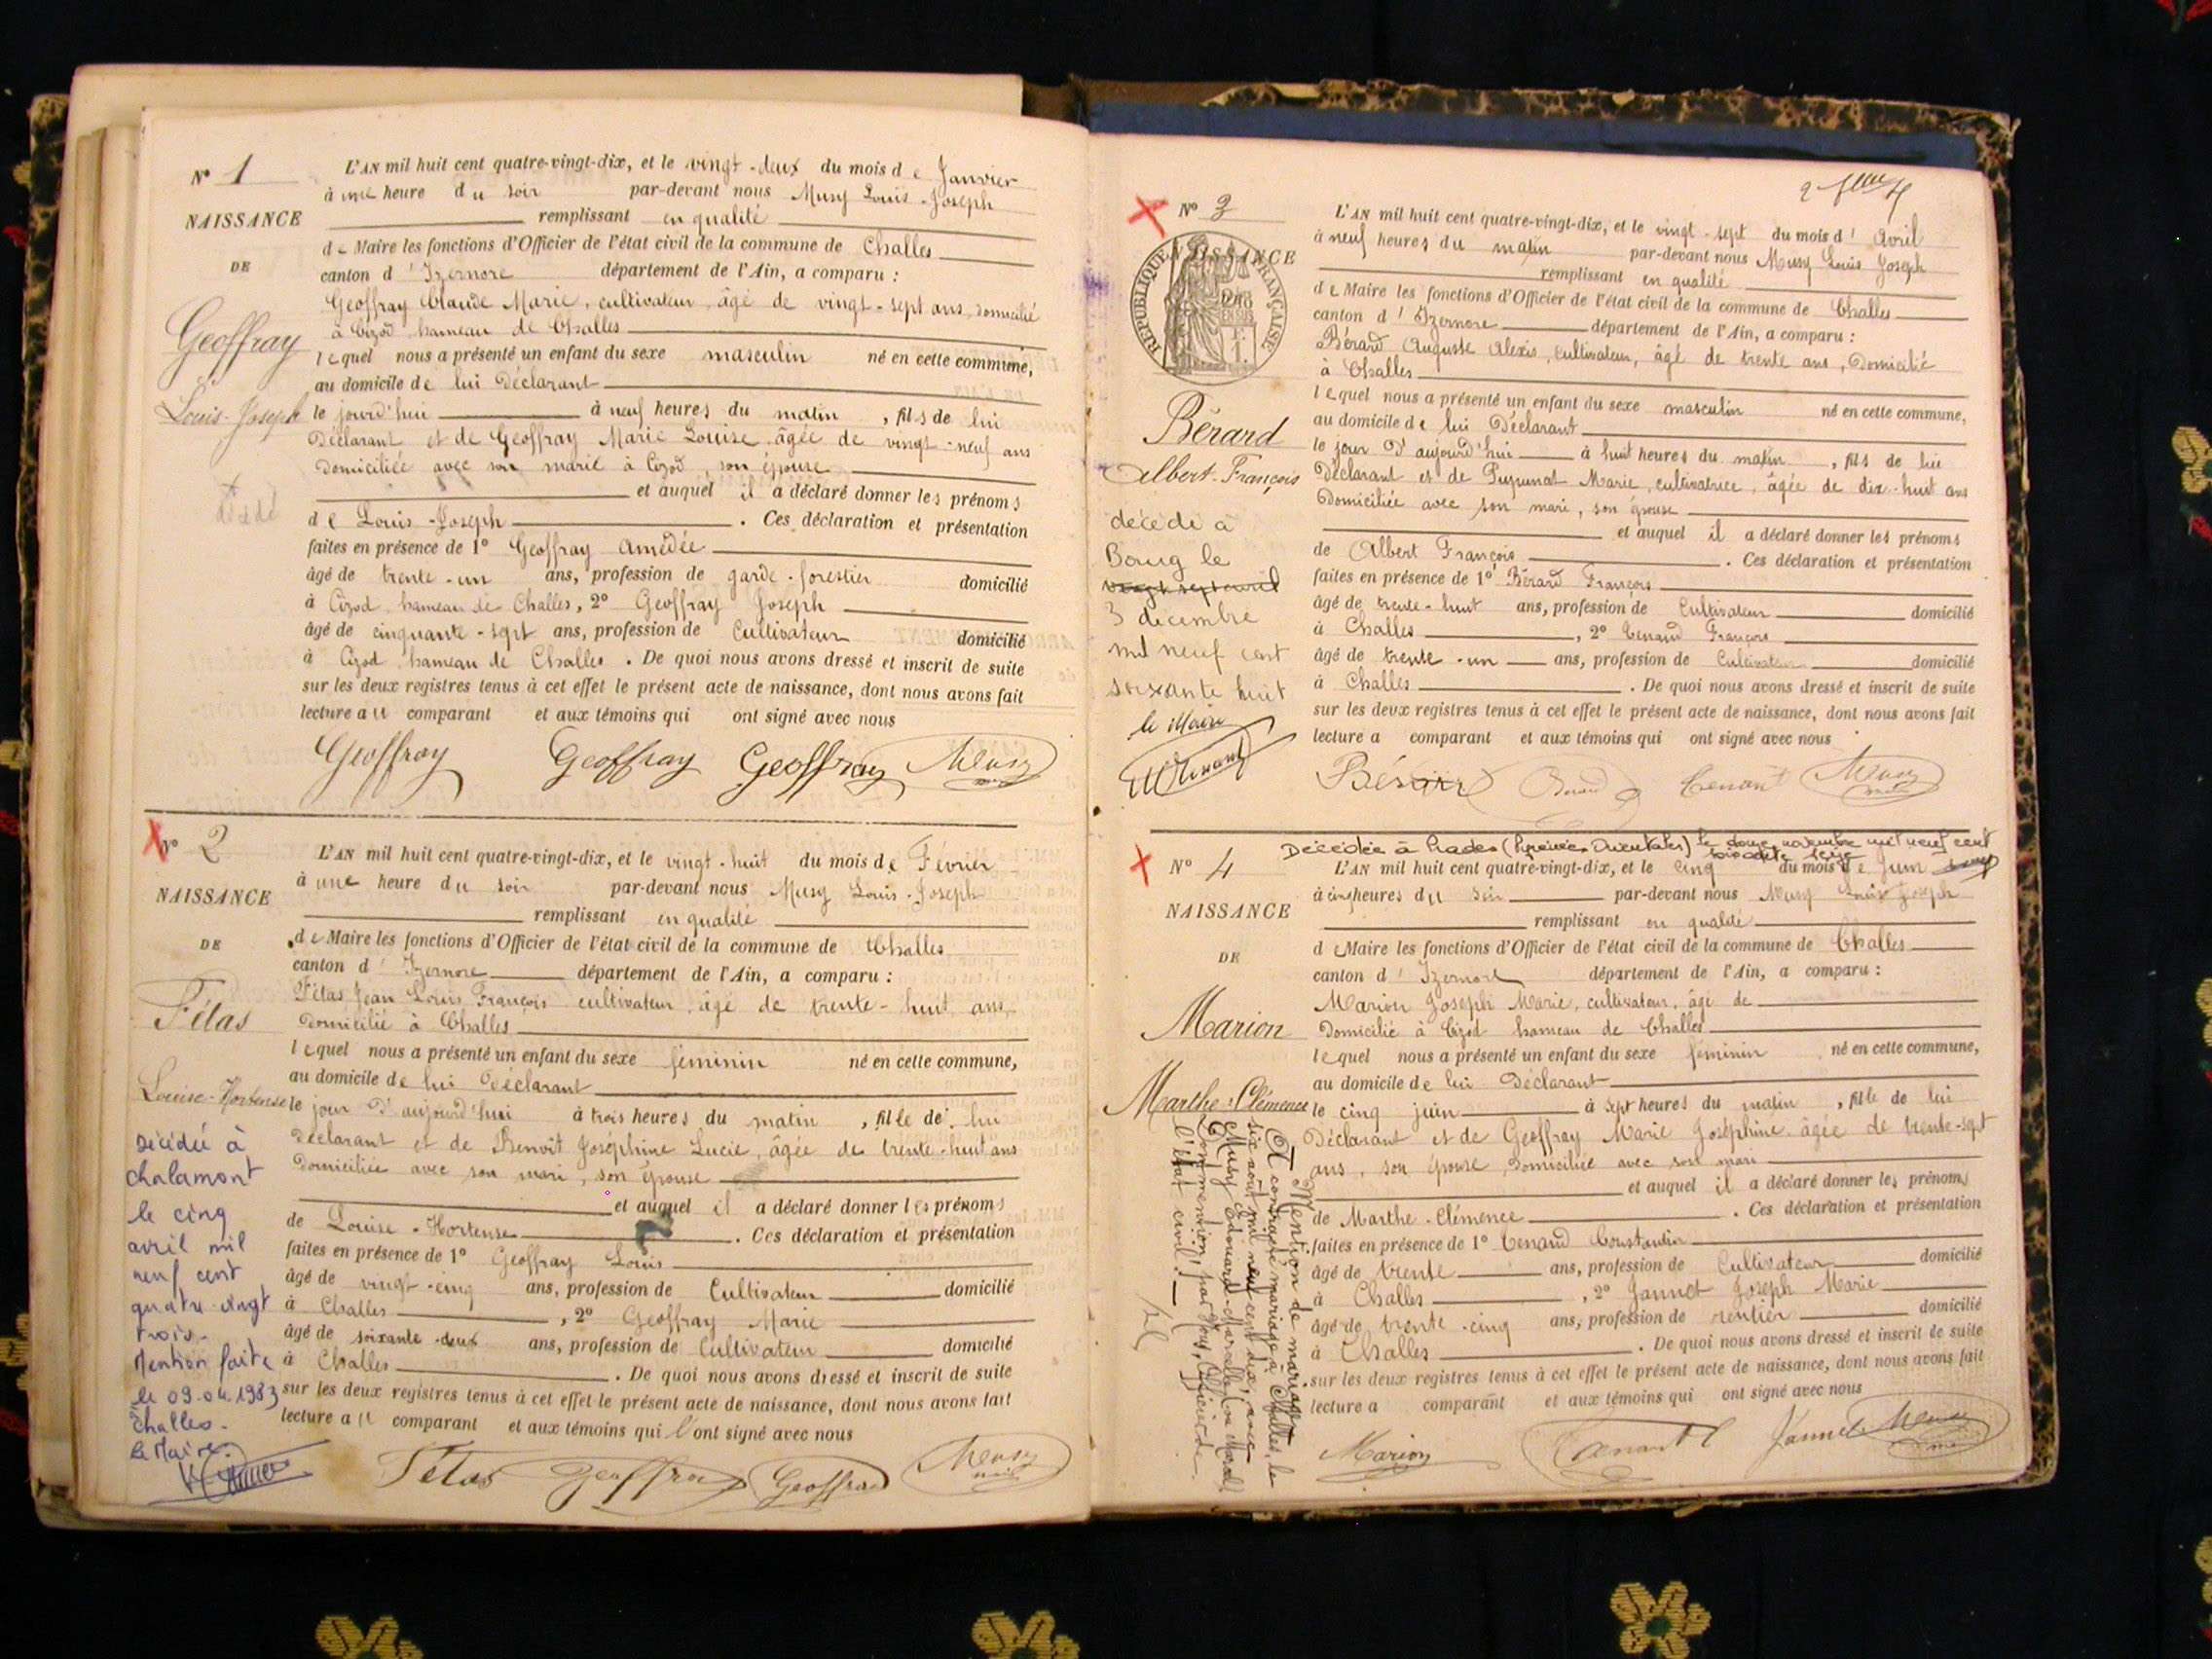 N° 1
NAISSANCE
DE
Geoffray
Louis-Joseph
décédé
L'AN mil huit cent quatre-vingt-dix, et le vingt-deux du mois de Janvier
à une heure du soir par-devant nous Musy Louis-Joseph
remplissant en qualité
de Maire les fonctions d'Officier de l'état civil de la commune de Challes
canton d'Izernore département de l'Ain, a comparu :
Geoffray Claude Marie, cultivateur, âgé de vingt-sept ans, domicilié
à Cizod hameau de Challes
lequel nous a présenté un enfant du sexe masculin né en cette commune,
au domicile de lui Déclarant
le jourd'hui à neuf heures du matin, fils de lui
Déclarant et de Geoffray Marie Louise âgée de vingt-neuf ans
Domiciliée avec son marié à Cizod, son épouse
et auquel il a déclaré donner les prénoms
de Louis-Joseph. Ces déclaration et présentation
faites en présence de 1° Geoffray Amédée
âgé de trente-un ans, profession de garde-forestier domicilié
à Cizod hameau de Challes, 2° Geoffray Joseph
âgé de cinquante-sept ans, profession de Cultivateur domicilié
à Cizod hameau de Challes. De quoi nous avons dressé et inscrit de suite
sur les deux registres tenus à cet effet le présent acte de naissance, dont nous avons fait
lecture au comparant et aux témoins qui ont signé avec nous
Geoffray Geoffray Geoffray Musy
N° 2
NAISSANCE
DE
Fétas
Louise-Hortense
Décédée à
Chalamont
le cinq
avril mil
neuf cent
quatre-vingt
trois.
Mention faite
le 09.04.1983
Challes.
Le Maire.
L'AN mil huit cent quatre-vingt-dix, et le vingt-huit du mois de Février
à une heure du soir par-devant nous Musy Louis-Joseph
remplissant en qualité
de Maire les fonctions d'Officier de l'état civil de la commune de Challes
canton d'Izernore département de l'Ain, a comparu :
Fétas Jean Louis François cultivateur âgé de trente-huit ans
Domicilié à Challes
lequel nous a présenté un enfant du sexe féminin né en cette commune,
au domicile de lui Déclarant
le jour d'aujourd'hui à trois heures du matin, fille de lui
Déclarant et de Benoît Joséphine Lucie, âgée de trente-huit ans
Domiciliée avec son mari, son épouse
et auquel il a déclaré donner les prénoms
de Louise-Hortense. Ces déclaration et présentation
faites en présence de 1° Geoffray Louis
âgé de vingt-cinq ans, profession de Cultivateur domicilié
à Challes, 2° Geoffray Marie
âgé de soixante-deux ans, profession de Cultivateur domicilié
à Challes. De quoi nous avons dressé et inscrit de suite
sur les deux registres tenus à cet effet le présent acte de naissance, dont nous avons fait
lecture au comparant et aux témoins qui l'ont signé avec nous
Fétas Geoffray Geoffray Musy
N° 3
NAISSANCE
RÉPUBLIQUE FRANÇAISE
Bérard
Albert-François
décédé à
Bourg le
vingt sept avril
3 décembre
mil neuf cent
soixante huit
le Maire
L'AN mil huit cent quatre-vingt-dix, et le vingt-sept du mois d'Avril
à neuf heures du matin par-devant nous Musy Louis Joseph
remplissant en qualité
de Maire les fonctions d'Officier de l'état civil de la commune de Challes
canton d'Izernore département de l'Ain, a comparu :
Bérard Auguste Alexis, cultivateur, âgé de trente ans, Domicilié
à Challes
lequel nous a présenté un enfant du sexe masculin né en cette commune,
au domicile de lui Déclarant
le jour d'aujourd'hui à huit heures du matin, fils de lui
Déclarant et de Pupunat Marie, cultivatrice, âgée de dix-huit ans
Domiciliée avec son mari, son épouse
et auquel il a déclaré donner les prénoms
de Albert François. Ces déclaration et présentation
faites en présence de 1° Bérard François
âgé de trente-huit ans, profession de Cultivateur domicilié
à Challes, 2° Tenand François
âgé de trente-un ans, profession de Cultivateur domicilié
à Challes. De quoi nous avons dressé et inscrit de suite
sur les deux registres tenus à cet effet le présent acte de naissance, dont nous avons fait
lecture a comparant et aux témoins qui ont signé avec nous
Bérard Musy
Décédée à Prades (Pyrénées Orientales) le douze novembre mil neuf cent
soixante seize
N° 4
NAISSANCE
DE
Marion
Marthe-Clémence
Mention de mariage
Et contracté mariage à Challes, le
six août mil neuf cent dix, avec
Musy Edouard
Dont mention, par Nous, Officier de
l'état civil.
L'AN mil huit cent quatre-vingt-dix, et le cinq du mois de Juin
à cinq heures du soir par-devant nous Musy Louis Joseph
remplissant en qualité
de Maire les fonctions d'Officier de l'état civil de la commune de Challes
canton d'Izernore département de l'Ain, a comparu :
Marion Joseph Marie, cultivateur, âgé de
Domicilié à Cizod hameau de Challes
lequel nous a présenté un enfant du sexe féminin né en cette commune,
au domicile de lui Déclarant
le cinq juin à sept heures du matin, fille de lui
Déclarant et de Geoffray Marie Joséphine âgée de trente-sept
ans, son épouse, Domiciliée avec son mari
et auquel il a déclaré donner les prénoms
de Marthe-Clémence. Ces déclaration et présentation
faites en présence de 1° Tenand Constantin
âgé de trente ans, profession de Cultivateur domicilié
à Challes, 2° Jannet Joseph Marie
âgé de trente-cinq ans, profession de rentier domicilié
à Challes. De quoi nous avons dressé et inscrit de suite
sur les deux registres tenus à cet effet le présent acte de naissance, dont nous avons fait
lecture a comparant et aux témoins qui ont signé avec nous
Marion Jannet Musy